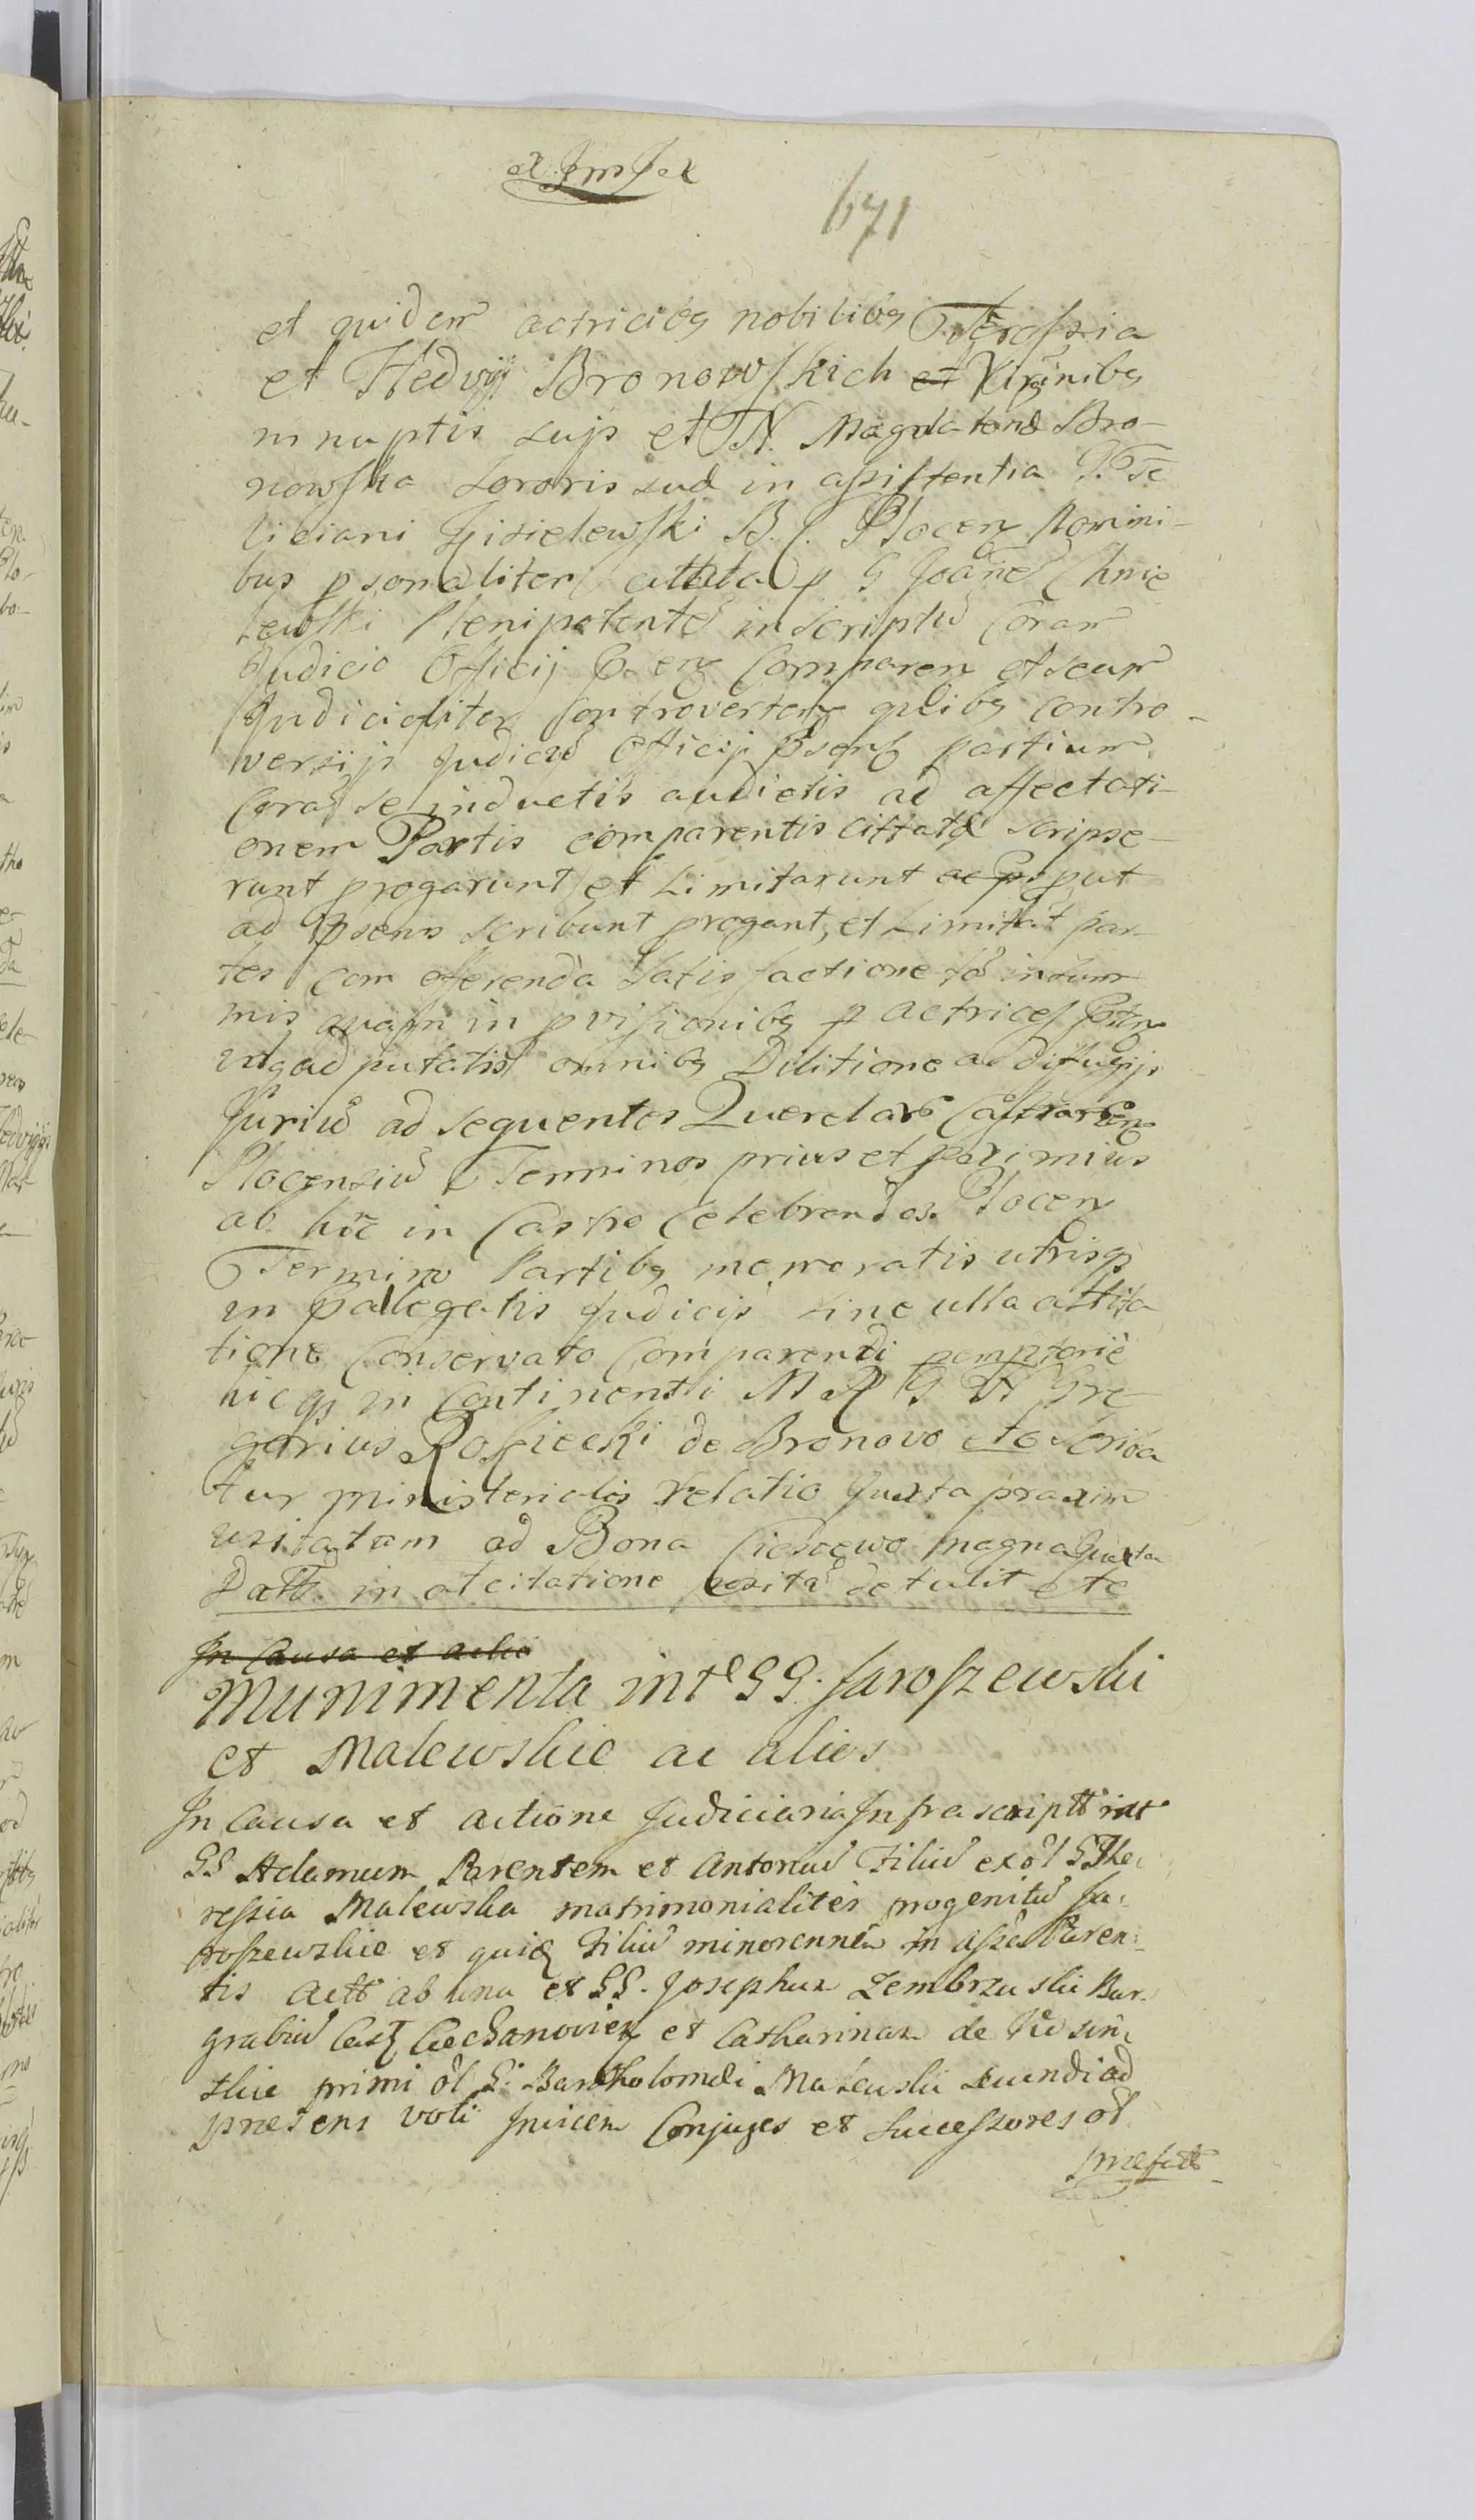 671
et quidem actricibg nobilibg Theressia
et Hedvigi Bronowskich et Virginibg
innuptis suijs et N. Magdalenæ Bro-
nowska Sororis suæ in assistentia G. Fe
liciani Kisielewski B. C. Plocen Nomini-
bus psonaliter cittata p G Joanē Chmie
lewski Plenipotentē inscriptū Coram
Judicio Officij Comparen et secum
Judicialiter Controverten quibg contro-
versijs Judiciū Officij psens partium
Cora se inductis audictis ad affectati-
onem Partis comparentis cittatæ scripse-
runt progarunt et Limitarunt ac put
ad psens scribunt progant, et Limitāt par-
tes com offerenda Satisfactione in sum
mis quam in pvisionibg p actrices
putatis omnibg Dilitione ac difugijs
Juriū ad sequentes Querelarū
Plocensiū Terminos prius et proximius
ab hic in Castro Celebrandos Plocen
Termino Partibg memoratis utrisq
in pallegatis Judicijs sine ulla attita
tione Conservato Comparendi pemptorie
hicq in Continenti M R G N Gre
gorius Rosciecki de Bronovo etc Scriba
tur ministerialis relatio Juxta praxim
usitatam ad Bona Ciesewo magna Juxta
Datt. in citatione posita detulit etc
In Causa et actio
Munimenta intē GG. Jaroszewski
et Malewskie ac alios
In Causa et actione Judiciaria Infrascriptt int
GG Adamum Parentem et Antoniū Filiū ex ol G The
ressia Malewska matrimonialiter progenitū Ja-
roszewskie et quid Filiū minorennem in assa Paren-
tis actt ab una et GG. Josephum Zembrzuski Bur-
grabiū Cast Ciechanovien et Catharinam de
skie primi ol G. Bartholomæi Malewski secundi ad
præsens voti Invicem Conjuges et Successores ol
præfatt